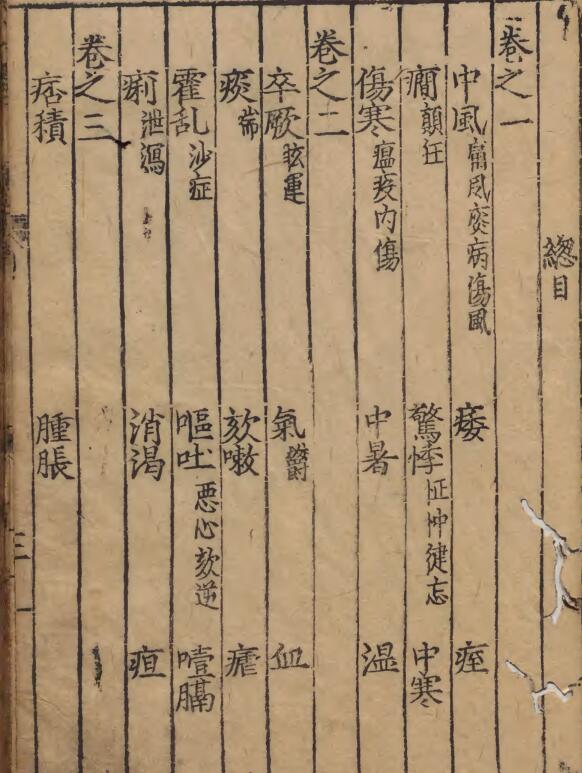 總目
卷之一
中風 凮病傷風 痿 痓
癇 顛狂 驚悸 怔忡健忘 中寒
傷寒 瘟疫内傷 中暑 湿
卷之二
卒厥 眩運 氣 鬱 血
痰 喘 欬嗽 瘧
霍乱 沙症 嘔吐 悪心欬逆 噎膈
痢 泄瀉 消渴 疸
卷之三
痞積 腫脹